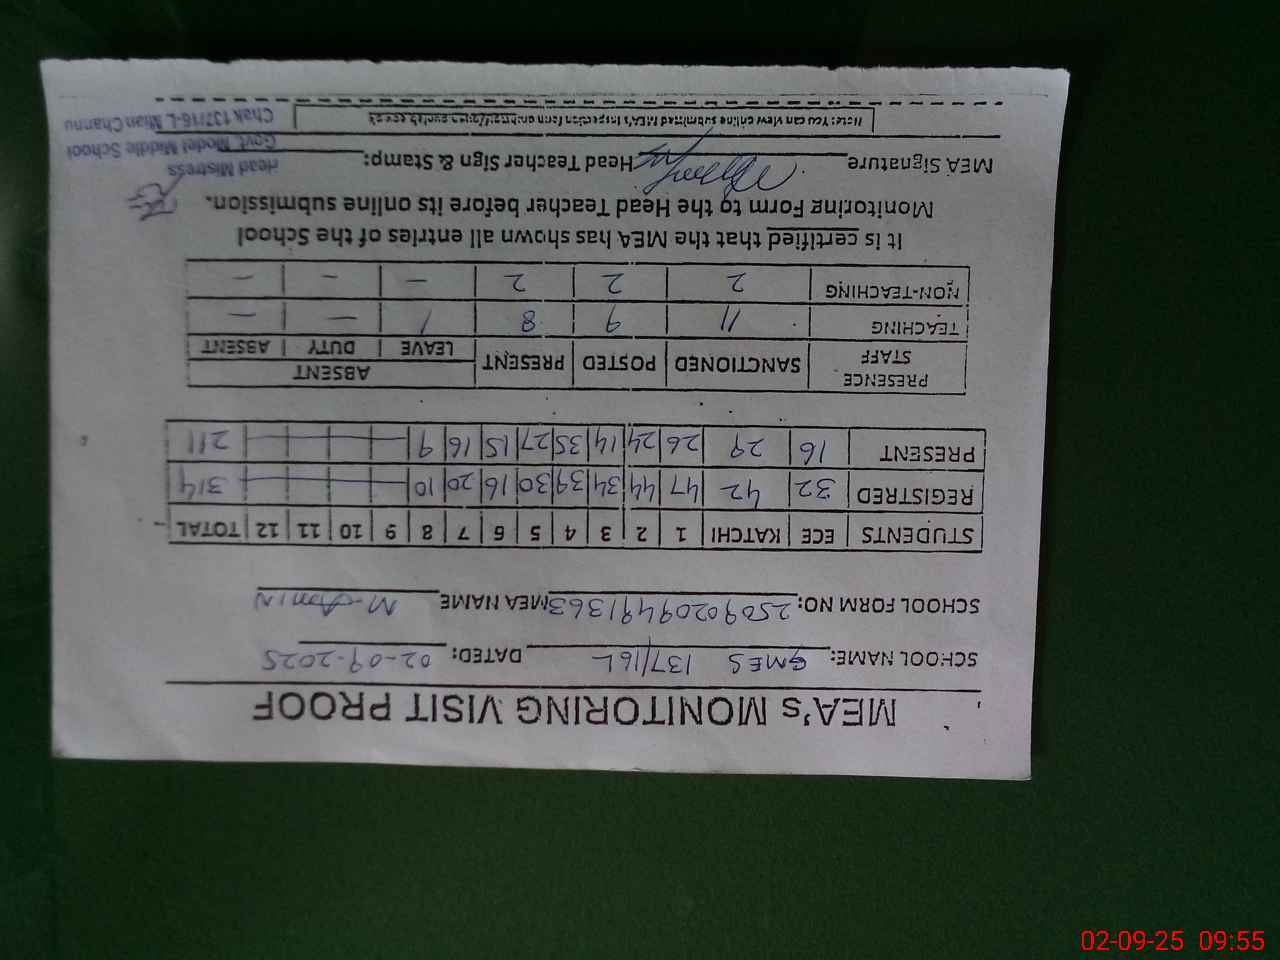 MEA's MONITORING VISIT PROOF
SCHOOL NAME: GMES 137/16L DATED: 02-09-2025
SCHOOL FORM NO: 25090209491363 MEA NAME M-Amin
STUDENTS ECE KATCHI 1 2 3 4 5 6 7 8 9 10 11 12 TOTAL
REGISTRED 32 42 47 44 34 39 30 16 20 10 314
PRESENT 16 29 26 24 14 35 27 15 16 9 211
PRESENCE STAFF SANCTIONED POSTED PRESENT ABSENT
LEAVE DUTY ABSENT
TEACHING 11 9 8 1 — —
NON-TEACHING 2 2 2 — — —
It is certified that the MEA has shown all entries of the School
Monitoring Form to the Head Teacher before its online submission.
MEA Signature Head Teacher Sign & Stamp:
Head Mistress
Govt. Model Middle School
Chak 137/16-L Mian Channu
Note: You can view online submitted MEA's inspection form on
02-09-25 09:55